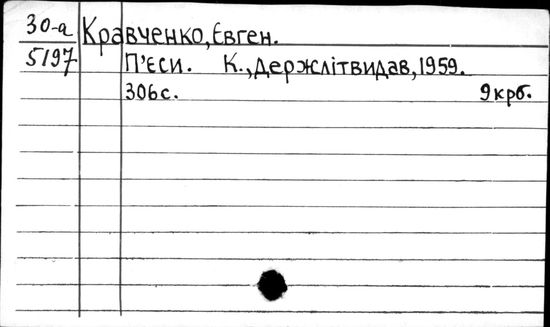 30-а Кравченко, Євген.
5197 П'єси. К., Держлітвидав, 1959.
306с. 9крб.